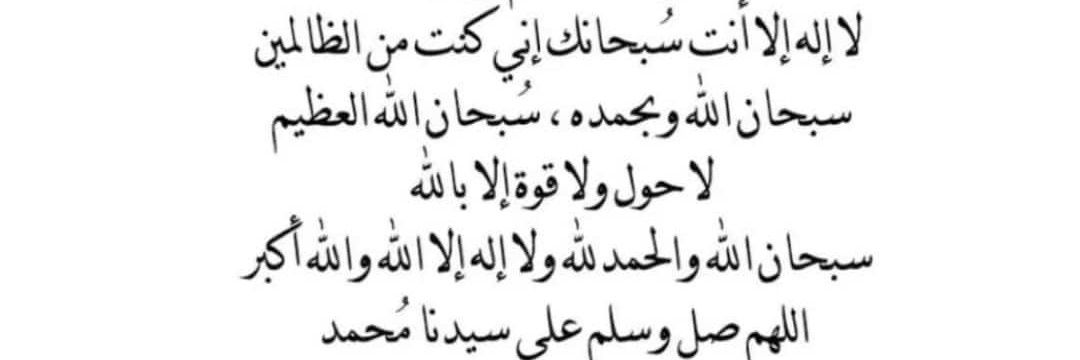 لا إله إلا أنت سُبحانك إني كنت من الظالمين
سبحان الله وبحمده ، سُبحان الله العظيم
لا حول ولا قوة إلا بالله
سبحان الله والحمد لله ولا إله إلا الله والله أكبر
اللهم صل وسلم على سيدنا مُحمد